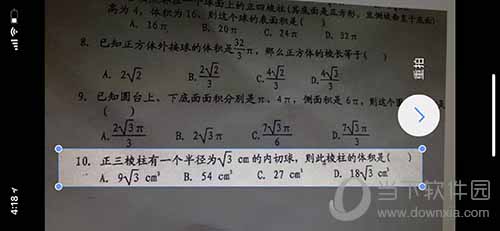 一个球面上的正四棱柱(其底面是正方形,且侧棱垂直于底面)
高为4,体积为16,则这个球的表面积是( )
A. 16π B. 20π C. 24π D. 32π
8. 已知正方体外接球的体积是32/3 π,那么正方体的棱长等于( )
A. 2√2 B. 2√2/3 C. 4√2/3 D. 4√3/3
9. 已知圆台上、下底面面积分别是π、4π,侧面积是6π,则这个
( )
A. 2√3π/3 B. 2√3π C. 7√3π/6 D. 7√3π/3
10. 正三棱柱有一个半径为√3 cm的内切球,则此棱柱的体积是( )
A. 9√3 cm³ B. 54 cm³ C. 27 cm³ D. 18√3 cm³
重拍
4:18
当下软件园
www.downxia.com